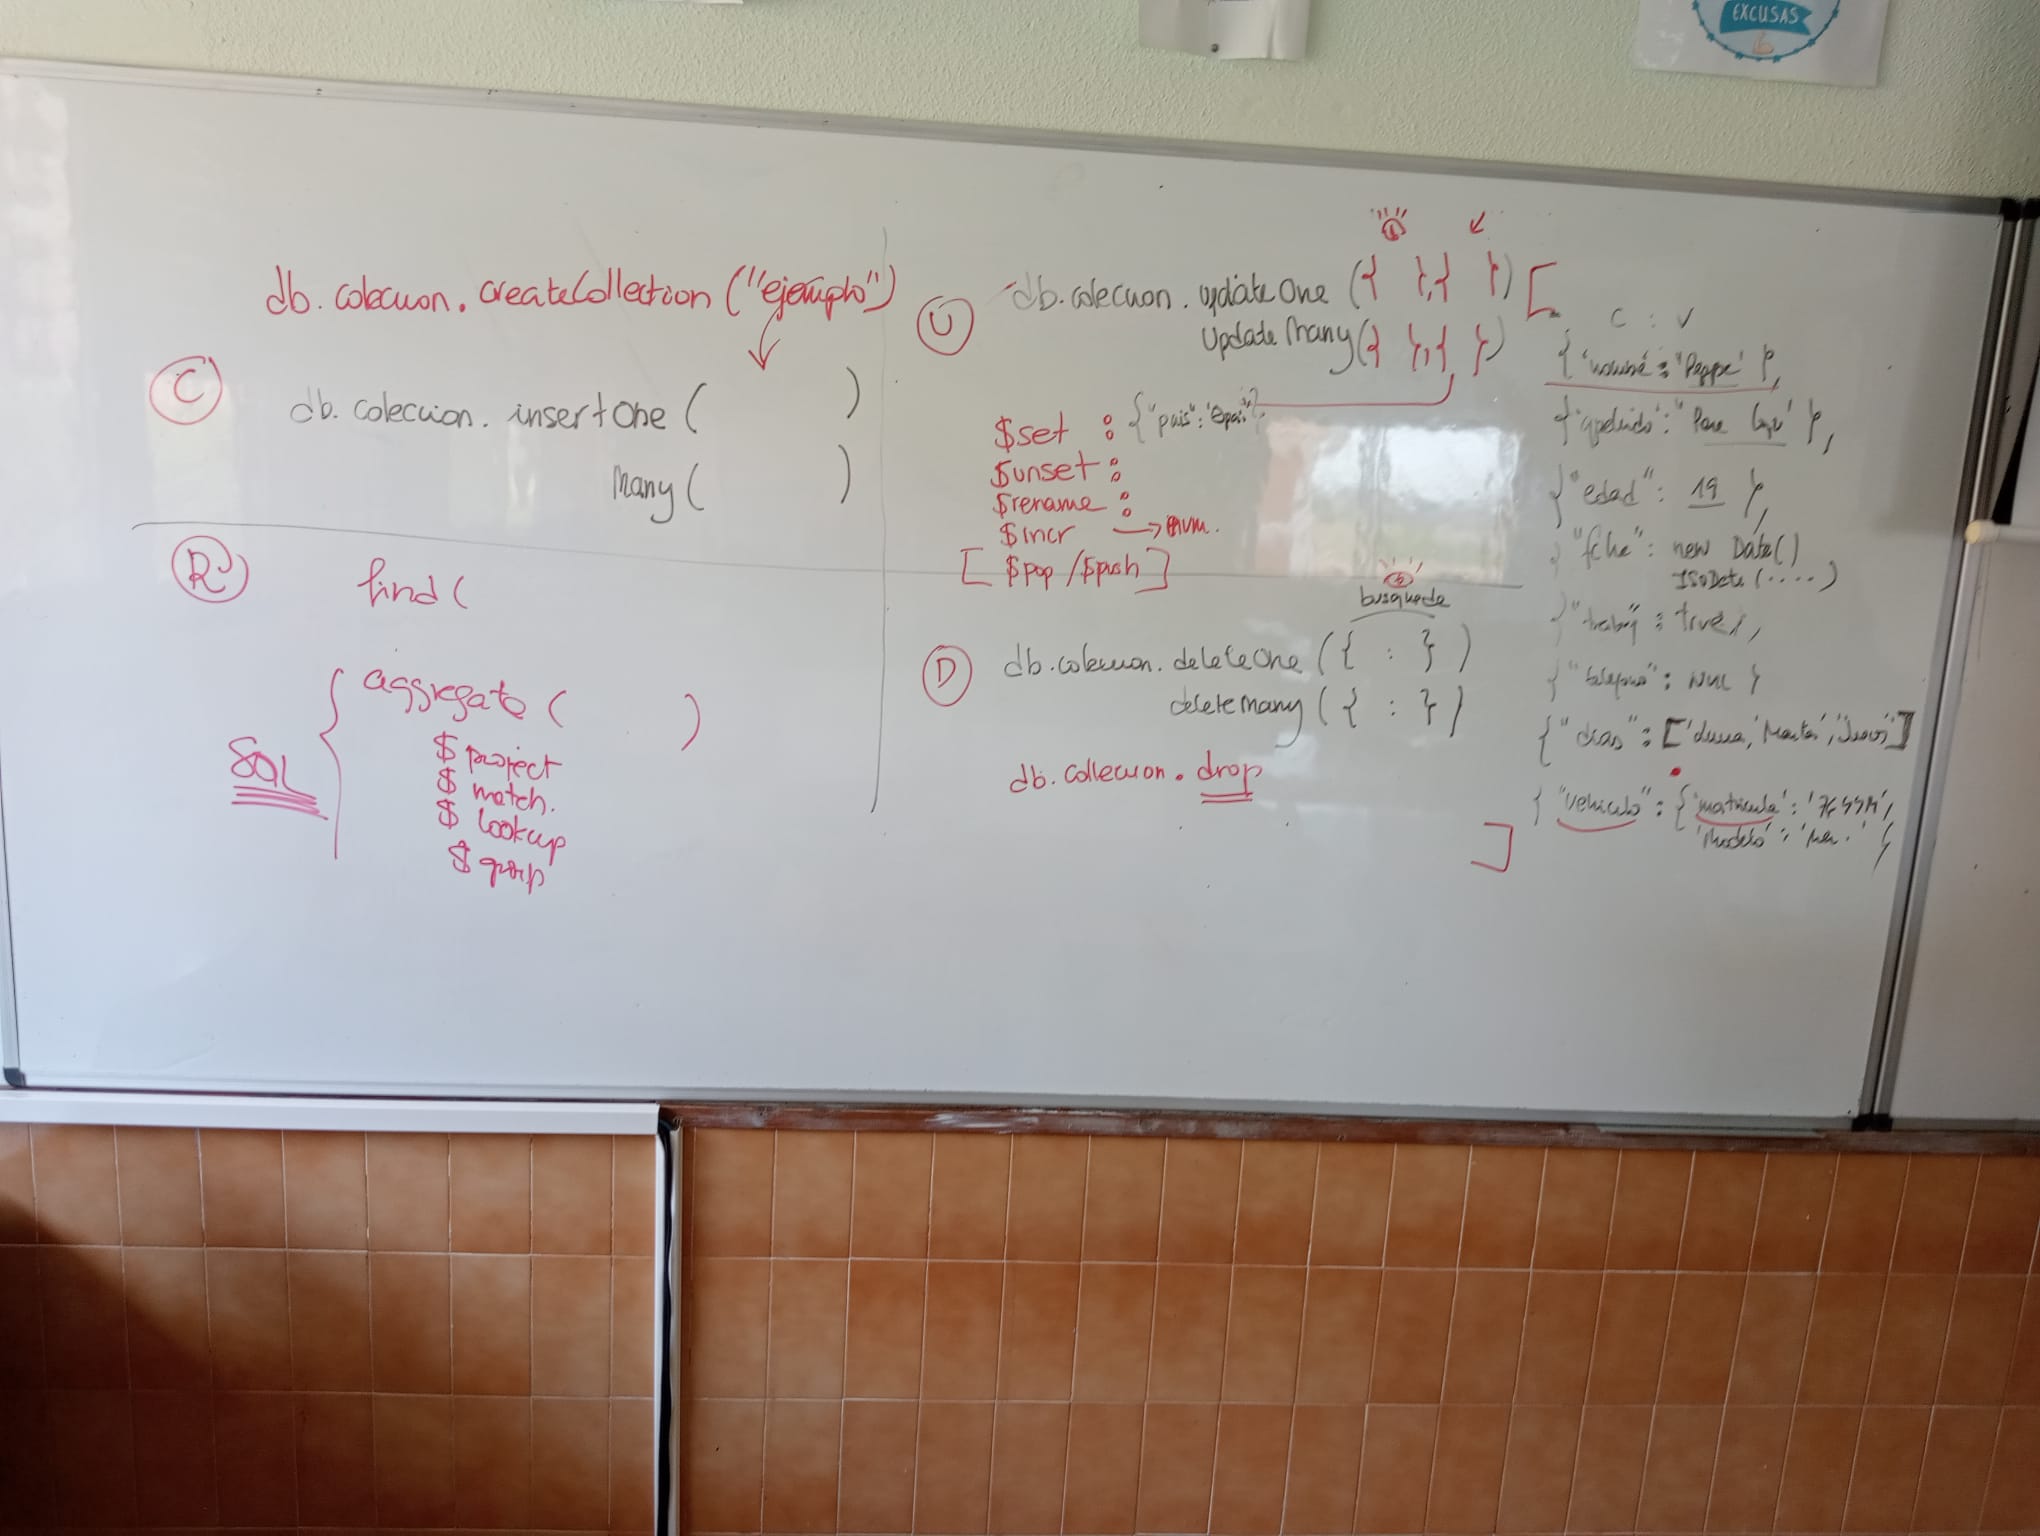 EXCUSAS
db.coleccion.createCollection ("ejemplo")
C
db.coleccion.insertOne ( )
Many ( )
R
find (
aggregate ( )
SQL
$ project
$ match.
$ lookup
$ group
U
db.coleccion.updateOne ({ },{ })
UpdateMany ({ },{ })
$set : {"pais":
$unset :
$rename :
$incr → num.
[ $pop / $push ]
D
busqueda
db.coleccion.deleteOne ({ : })
deleteMany ({ : })
db.colleccion.drop
[
C : V
{ 'nombre' : 'Peppe' },
{ 'apellido' : "
{ "edad" : 19 },
new Date()
ISODate (....)
: true },
: NULL }
{ "dias" : [
{ "vehiculo" : { 'matricula' :
'Modelo' :
]